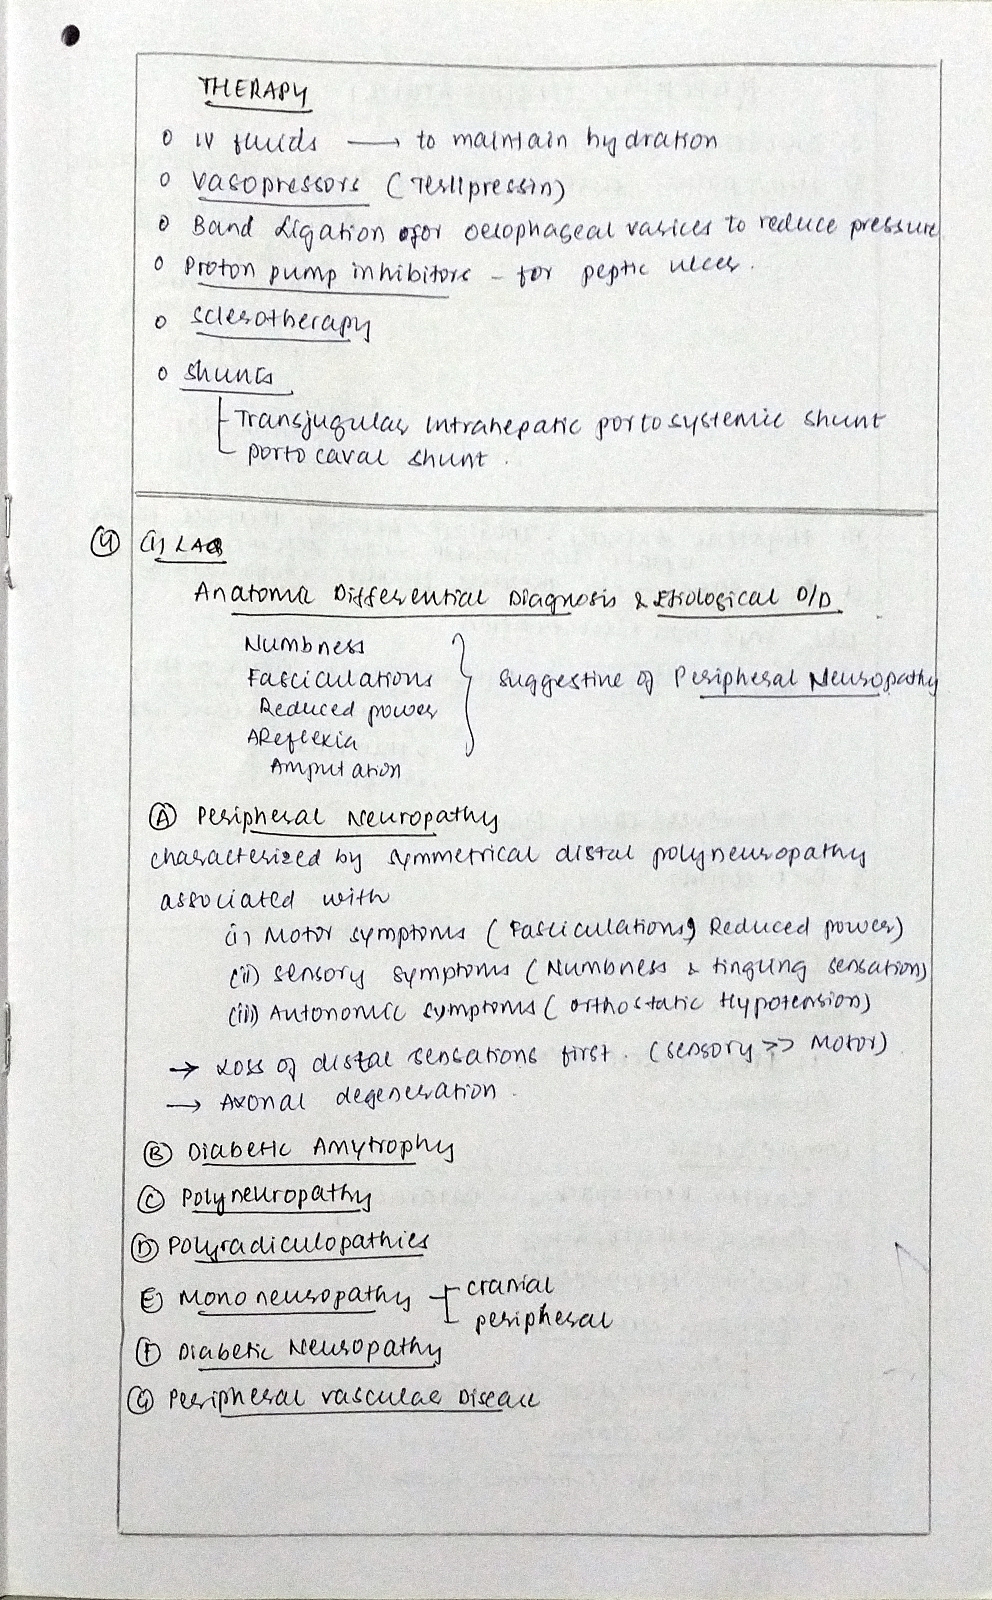 THERAPY
o IV fluids → to maintain hydration
o Vasopressors (Terlipressin)
o Band Ligation for oesophageal varices to reduce pressure
o Proton pump inhibitors - for peptic ulcer.
o Sclerotherapy
o Shunts
Transjugular intrahepatic porto systemic shunt
porto caval shunt.
④ (1) LAQ
Anatomic Differential Diagnosis & Etiological D/D
Numbness
Fasciculations
Reduced power
AReflexia
Amputation
} suggestive of Peripheral Neuropathy
Ⓐ Peripheral Neuropathy
characterized by symmetrical distal polyneuropathy
associated with
(i) Motor symptoms (Fasciculations, Reduced power)
(ii) Sensory symptoms (Numbness & tingling sensation)
(iii) Autonomic symptoms (Orthostatic Hypotension)
→ Loss of distal sensations first. (sensory >> Motor)
→ Axonal degeneration.
Ⓑ Diabetic Amytrophy
Ⓒ Polyneuropathy
Ⓓ Polyradiculopathies
Ⓔ Mono neuropathy cranial
peripheral
Ⓕ Diabetic Neuropathy
Ⓖ Peripheral vascular Disease